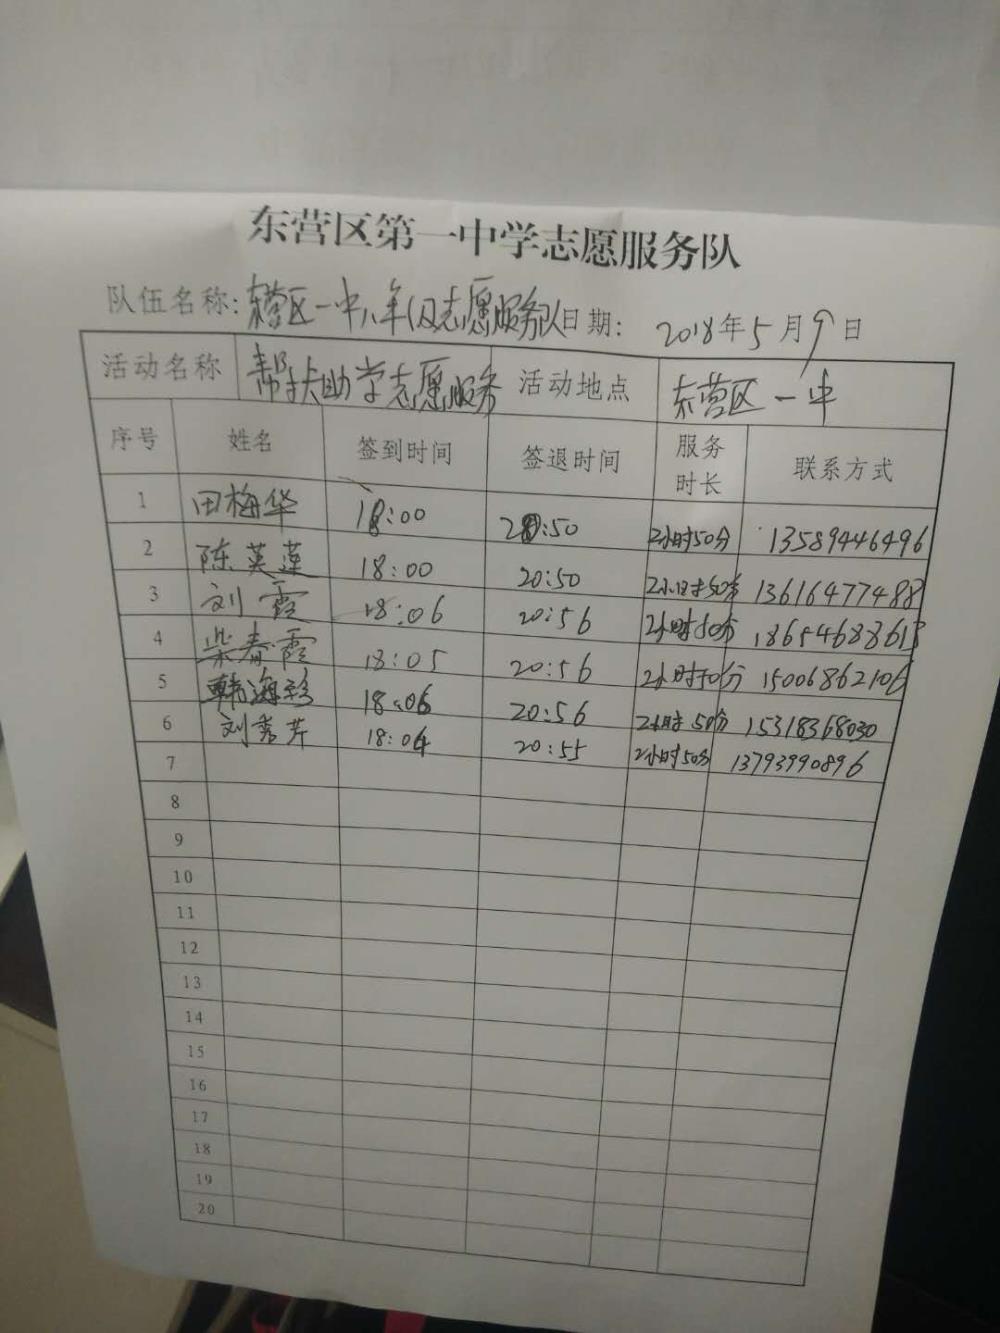 东营区第一中学志愿服务队
队伍名称：东营区一中八年级志愿服务队 日期： 2018年5月9日
活动名称 帮扶助学志愿服务 活动地点 东营区一中
序号 姓名 签到时间 签退时间 服务时长 联系方式
1 田梅华 18:00 20:50 2小时50分 13589446496
2 陈英莲 18:00 20:50 2小时50分 13616477488
3 刘霞 18:06 20:56 2小时50分 18654688613
4 柴春霞 18:05 20:56 2小时50分 15006862106
5 韩海珍 18:06 20:56 2小时50分 15318368030
6 刘秀芹 18:04 20:55 2小时50分 13793990896
7
8
9
10
11
12
13
14
15
16
17
18
19
20